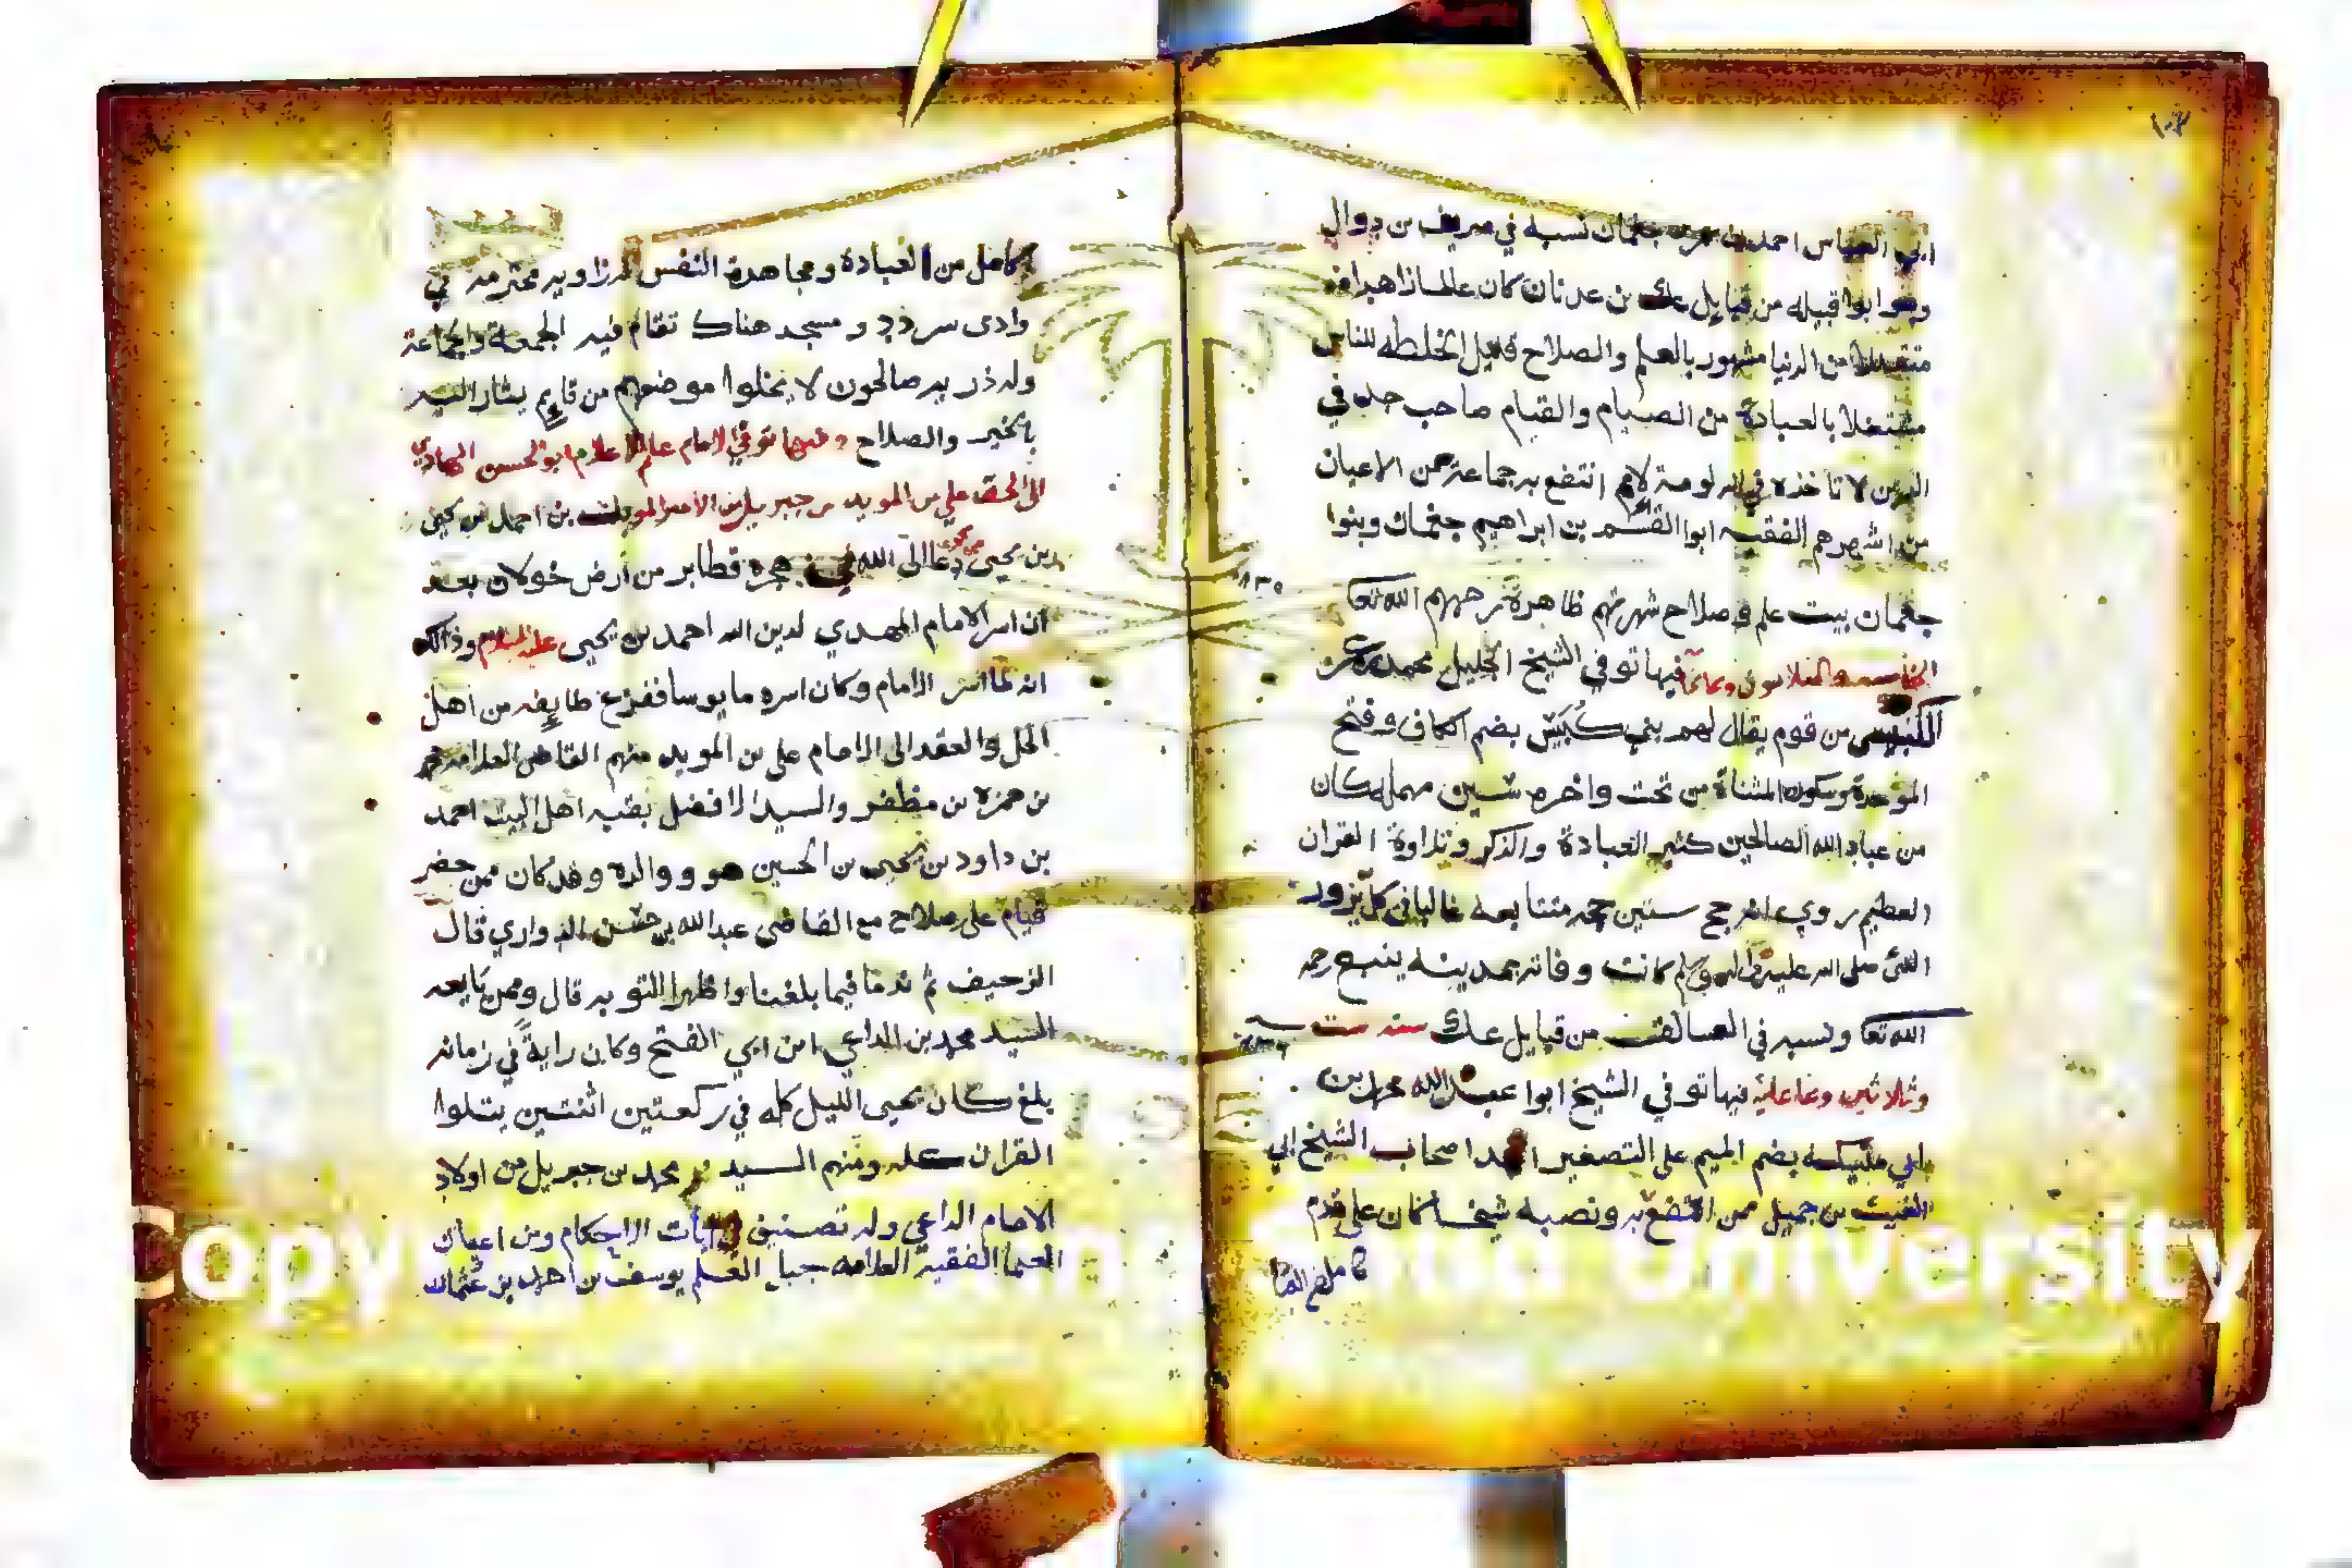 ابي العباس احمد بن عمر جغمان نسبه في صريف بن ذوال
وهو ابوا قبيله من قبايل عك بن عدنان كان عالما زاهدا
متقللا من الدنيا مشهور بالعلم والصلاح قليل الخلطه للناس
مشتغلا بالعبادة من الصيام والقيام صاحب جد في
الدين لا تاخذه في الله لومة لايم انتفع به جماعة من الاعيان
من اشهرهم الفقيه ابوا القسم بن ابراهيم جغمان وبنوا
جغمان بيت علم وصلاح شهرتهم ظاهرة رحمهم الله تعا
٨٣٥
الخامسه والثلاثون وثمانمائة فيها توفي الشيخ الجليل محمد بن عمر
الكبيسي من قوم يقال لهم بني كبيس بضم الكاف وفتح
الموحدة وسكون المثناة من تحت واخره سين مهمله كان
من عباد الله الصالحين كثير العبادة والذكر وتلاوة القران
العظيم روي انه حج ستين حجه متتابعه غالبا في كل يزور
النبي صلى الله عليه واله وسلم كانت وفاته بمدينه ينبع رحمه
الله تعا ونسبه في العسالق من قبايل عك سنه ست
وثلاثين وثمانمائة فيها توفي الشيخ ابوا عبد الله محمد بن
ابي مليكه بضم الميم على التصغير احد اصحاب الشيخ ابي
الغيث بن جميل ممن انتفع به ونصبه شيخا كان على قدم
كامل من العبادة ومجاهدة النفس له زاويه محترمه في
وادى سردد ومسجد هناك تقام فيه الجمعة والجماعة
وله ذريه صالحون لا يخلوا موضعهم من قايم يشار اليه
بالخير والصلاح وفيها توفي الامام عالم الاعلام ابو الحسن الهادي
الى الحق علي بن المويد بن جبريل بن الامير المويد بن احمد بن يحيى
بن يحيى دعا الى الله في هجره قطابر من ارض خولان بعد
ان اسر الامام المهدي لدين الله احمد بن يحيى عليه السلام وذالك
انه لما اسر الامام وكان اسره مايوسا ففزع طايفه من اهل
الحل والعقد الى الامام علي بن المويد منهم القاضي العلامه
بن حمزه بن مظفر والسيد الافضل بقيه اهل البيت احمد
بن داود بن يحيى بن الحسين هو ووالده وقد كان ممن حضر
قيام علي صلاح مع القاضي عبد الله بن حسن الدواري قال
الزحيف ثم ندما فيما بلغنا واظهرا التوبه قال وممن بايعه
السيد محمد بن الداعي ابن ابي الفتح وكان راية في زمانه
بلغ كان يحيى الليل كله في ركعتين اثنتين يتلوا
القران كله ومنهم السيد محمد بن جبريل من اولاد
الامام الداعي وله تصنيف في ايات الاحكام ومن اعيان
العلما الفقيه العلامه جبل العلم يوسف بن احمد بن عثمان
Copy University